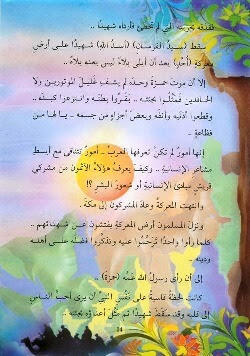 فقذفه بحربته التي لم تخطئ فأردته شهيدًا ..
سقط (سيدُ الفرسان) (أسدُ الله) شهيدًا على أرض
معركة (أُحُد) بعد أن أبلى بلاءً ليس بعده بلاءٌ ..
إلا أن موت حمزة وحده لم يشف غليلَ الموتورين ولا
الحاقدين فمثَّلوا بجثته .. بقروا بطنه وانتزعوا كبده ..
وقطعوا أذنيه وأنفه وبعض أجزاءٍ من جسمه .. يا لها من
فظاعةٍ ..
إنها أمورٌ لم تكن تعرفها العرب .. أمورٌ تتنافى مع أبسط
مشاعر الإنسانية .. وكيف يعرفُ هؤلاء الآثمون من مشركي
قريش مبادئ الإنسانية أو شعور البشر ؟!
وانتهت المعركة وعاد المشركون إلى مكة .
ونزل المسلمون أرض المعركة يفتشون عن شهدائهم ..
كلما رأوا واحدًا ترحَّموا عليه وتذكَّروا فضله على أهله
ودينه ..
إلى أن رأى رسولُ الله عمَّه (حمزة) ..
كانت لحظةً قاسيةً على نفس النبي أن يرى أحبَّ الناس
إلى قلبه وقد سقط شهيدًا ثم مثَّل أعداؤه بجثته ..
14